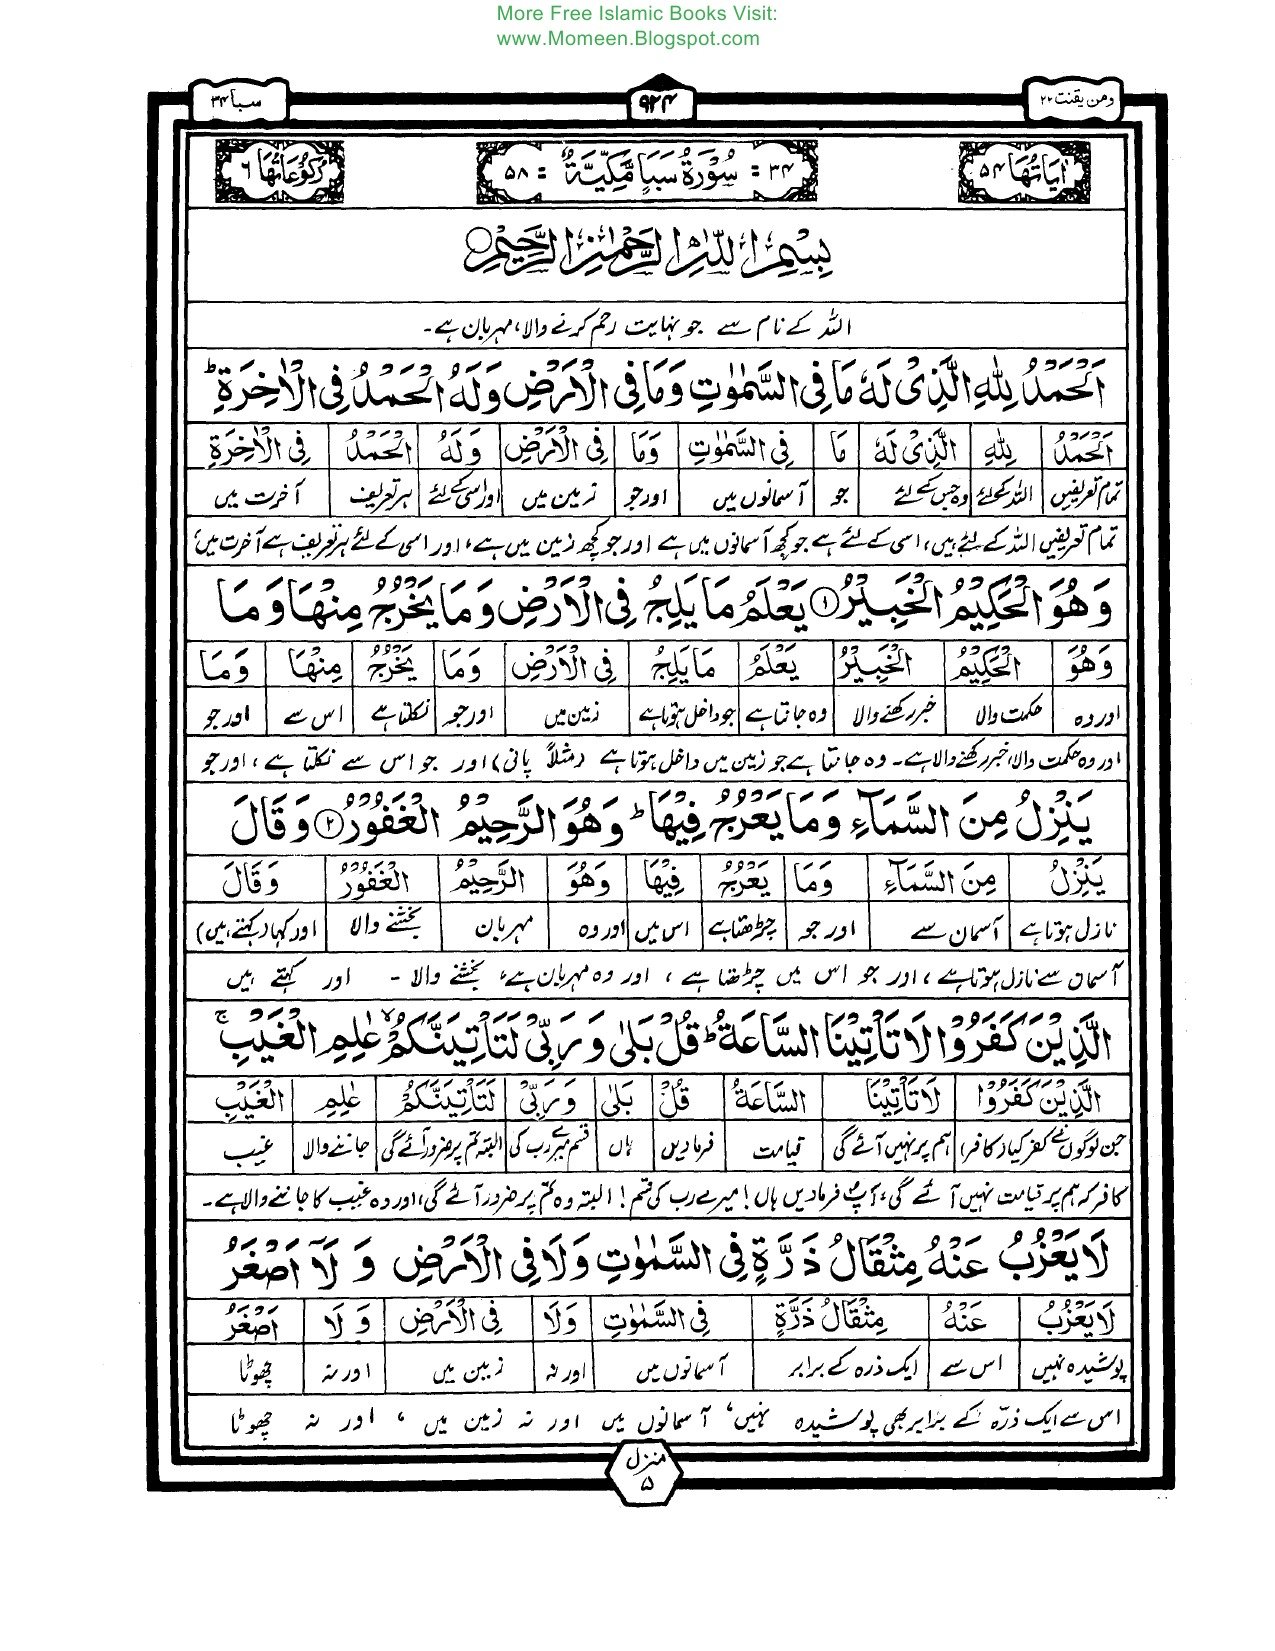 More Free Islamic Books Visit:
www.Momeen.Blogspot.com
ومن یقنت ۲۲
۹۲۴
سبا ۳۴
اٰيَاتُهَا ۵۴
۳۴ = سُوْرَةُ سَبَاٍ مَّكِّيَّةٌ = ۵۸
رُكُوْعَاتُهَا ۶
بِسْمِ اللّٰهِ الرَّحْمٰنِ الرَّحِيْمِ
اللہ کے نام سے جو نہایت رحم کرنے والا، مہربان ہے۔
اَلْحَمْدُ لِلّٰهِ الَّذِىْ لَهٗ مَا فِى السَّمٰوٰتِ وَمَا فِى الْاَرْضِ وَلَهُ الْحَمْدُ فِى الْاٰخِرَةِ ؕ
اَلْحَمْدُ لِلّٰهِ الَّذِىْ لَهٗ مَا فِى السَّمٰوٰتِ وَمَا فِى الْاَرْضِ وَلَهُ الْحَمْدُ فِى الْاٰخِرَةِ
تمام تعریفیں اللہ کیلئے وہ جس کے لئے جو آسمانوں میں اور جو زمین میں اور اسی کے لئے ہر تعریف آخرت میں
تمام تعریفیں اللہ کے لئے ہیں، اسی کے لئے ہے جو کچھ آسمانوں میں ہے اور جو کچھ زمین میں ہے، اور اسی کے لئے ہر تعریف ہے آخرت میں،
وَهُوَ الْحَكِيْمُ الْخَبِيْرُ ۱ يَعْلَمُ مَا يَلِجُ فِى الْاَرْضِ وَمَا يَخْرُجُ مِنْهَا وَمَا
وَهُوَ الْحَكِيْمُ الْخَبِيْرُ يَعْلَمُ مَا يَلِجُ فِى الْاَرْضِ وَمَا يَخْرُجُ مِنْهَا وَمَا
اور وہ حکمت والا خبر رکھنے والا وہ جانتا ہے جو داخل ہوتا ہے زمین میں اور جو نکلتا ہے اس سے اور جو
اور وہ حکمت والا، خبر رکھنے والا ہے۔ وہ جانتا ہے جو زمین میں داخل ہوتا ہے (مثلاً پانی) اور جو اس سے نکلتا ہے، اور جو
يَنْزِلُ مِنَ السَّمَآءِ وَمَا يَعْرُجُ فِيْهَا ؕ وَهُوَ الرَّحِيْمُ الْغَفُوْرُ ۲ وَقَالَ
يَنْزِلُ مِنَ السَّمَآءِ وَمَا يَعْرُجُ فِيْهَا وَهُوَ الرَّحِيْمُ الْغَفُوْرُ وَقَالَ
نازل ہوتا ہے آسمان سے اور جو چڑھتا ہے اس میں اور وہ مہربان بخشنے والا اور کہا (کہتے ہیں)
آسمان سے نازل ہوتا ہے، اور جو اس میں چڑھتا ہے، اور وہ مہربان ہے، بخشنے والا - اور کہتے ہیں
الَّذِيْنَ كَفَرُوْا لَا تَاْتِيْنَا السَّاعَةُ ؕ قُلْ بَلٰى وَرَبِّىْ لَتَاْتِيَنَّكُمْ ۙ عٰلِمِ الْغَيْبِ ۚ
الَّذِيْنَ كَفَرُوْا لَا تَاْتِيْنَا السَّاعَةُ قُلْ بَلٰى وَرَبِّىْ لَتَاْتِيَنَّكُمْ عٰلِمِ الْغَيْبِ
جن لوگوں نے کفر کیا (کافر) ہم پر نہیں آئے گی قیامت فرمادیں ہاں قسم میرے رب کی البتہ تم پر ضرور آئے گی جاننے والا غیب
کافر کہ ہم پر قیامت نہیں آئے گی، آپ فرمادیں ہاں! میرے رب کی قسم! البتہ وہ تم پر ضرور آئے گی، اور وہ غیب کا جاننے والا ہے۔
لَا يَعْزُبُ عَنْهُ مِثْقَالُ ذَرَّةٍ فِى السَّمٰوٰتِ وَلَا فِى الْاَرْضِ وَلَاۤ اَصْغَرُ
لَا يَعْزُبُ عَنْهُ مِثْقَالُ ذَرَّةٍ فِى السَّمٰوٰتِ وَلَا فِى الْاَرْضِ وَلَا اَصْغَرُ
پوشیدہ نہیں اس سے ایک ذرہ کے برابر آسمانوں میں اور نہ زمین میں اور نہ چھوٹا
اس سے ایک ذرّہ کے برابر بھی پوشیدہ نہیں، آسمانوں میں اور نہ زمین میں، اور نہ چھوٹا
منزل
۵